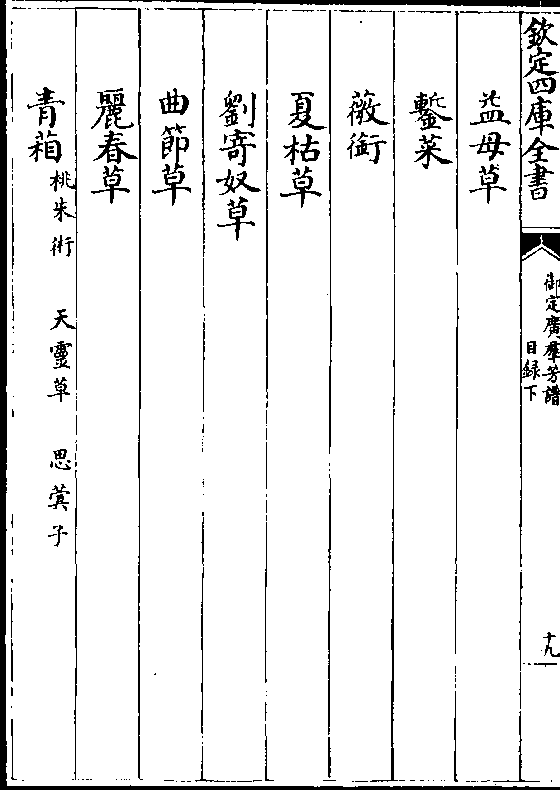 欽定四庫全書
御定廣羣芳譜
目録下
十九
益母草
鏨菜
薇銜
夏枯草
劉寄奴草
曲節草
麗春草
青葙 桃朱術 天靈草 思蓂子